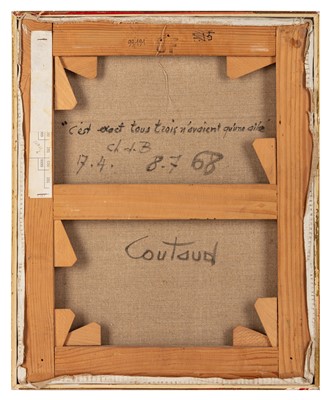 "c'est exact tous trois n'avaient qu'une aile"
ch. d. B
17.4. 8.7 68
Coutaud